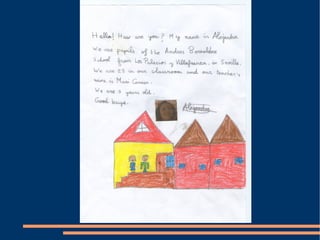 Hello! How are you? My name is Alejandra
We are pupils of the Andres Bernaldez
School from Los Palacios y Villafranca, in Seville.
We are 25 in our classroom and our teacher's
name is Mari Carmen.
We are 9 years old.
Good bye.
Alejandra